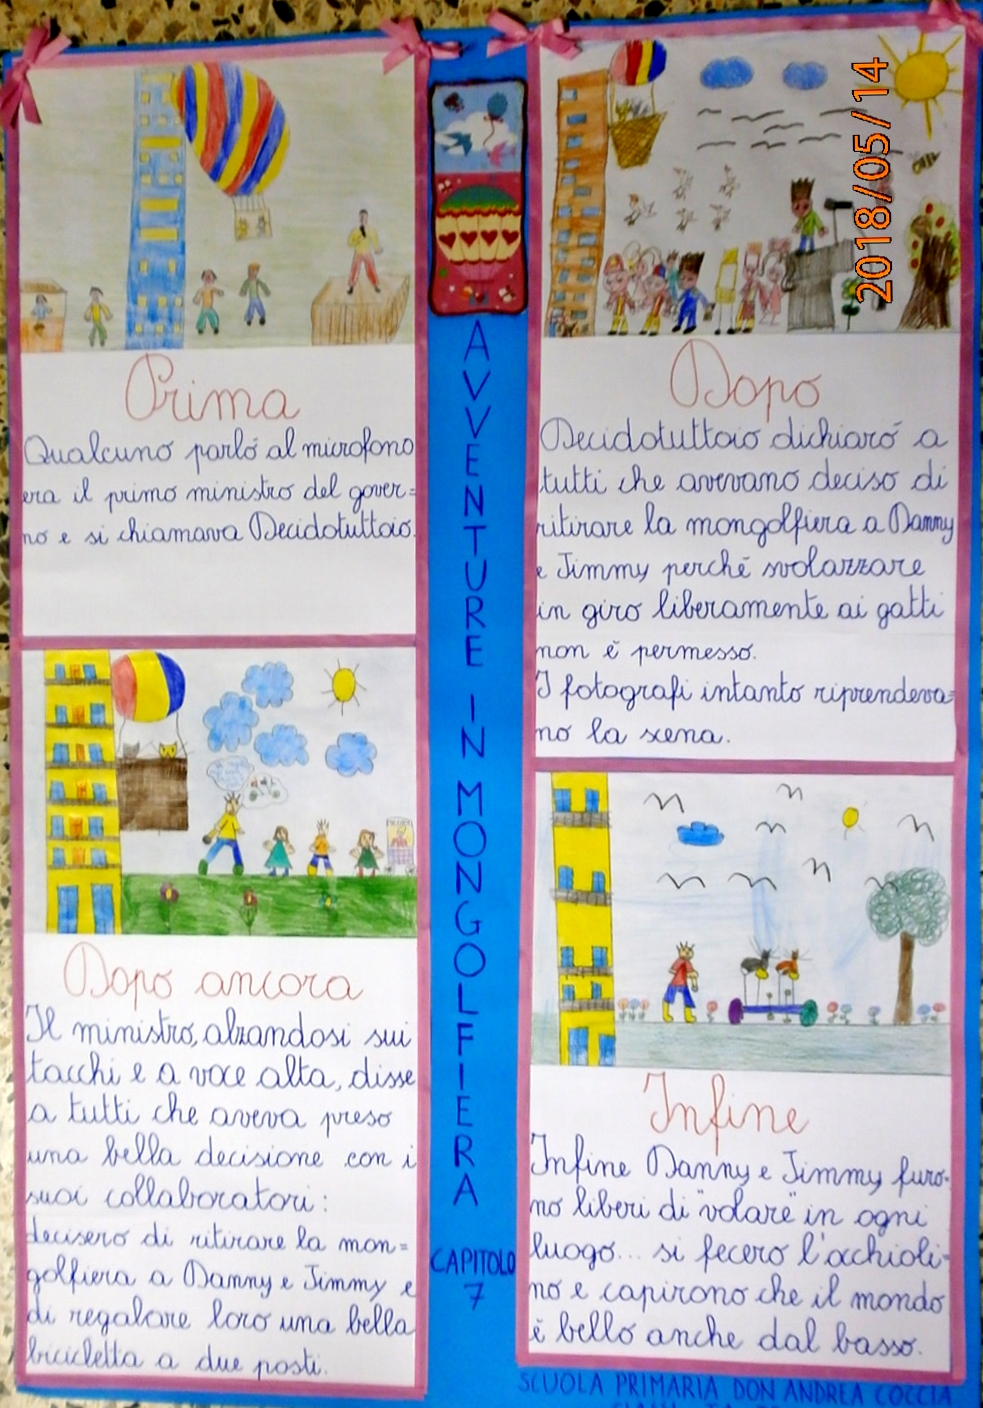 2018/05/14
AVVENTURE IN MONGOLFIERA
CAPITOLO
7
Prima
Qualcuno parlò al microfono
era il primo ministro del gover=
no e si chiamava Decidotuttoio.
Dopo
Decidotuttoio dichiarò a
tutti che avevano deciso di
ritirare la mongolfiera a Danny
e Jimmy perché svolazzare
in giro liberamente ai gatti
non è permesso.
I fotografi intanto riprendeva=
no la scena.
Dopo ancora
Il ministro, alzandosi sui
tacchi e a voce alta, disse
a tutti che aveva preso
una bella decisione con i
suoi collaboratori:
decisero di ritirare la mon=
golfiera a Danny e Jimmy e
di regalare loro una bella
bicicletta a due posti.
Infine
Infine Danny e Jimmy furo-
no liberi di "volare" in ogni
luogo... si fecero l'occhioli-
no e capirono che il mondo
è bello anche dal basso.
SCUOLA PRIMARIA DON ANDREA COCCIA